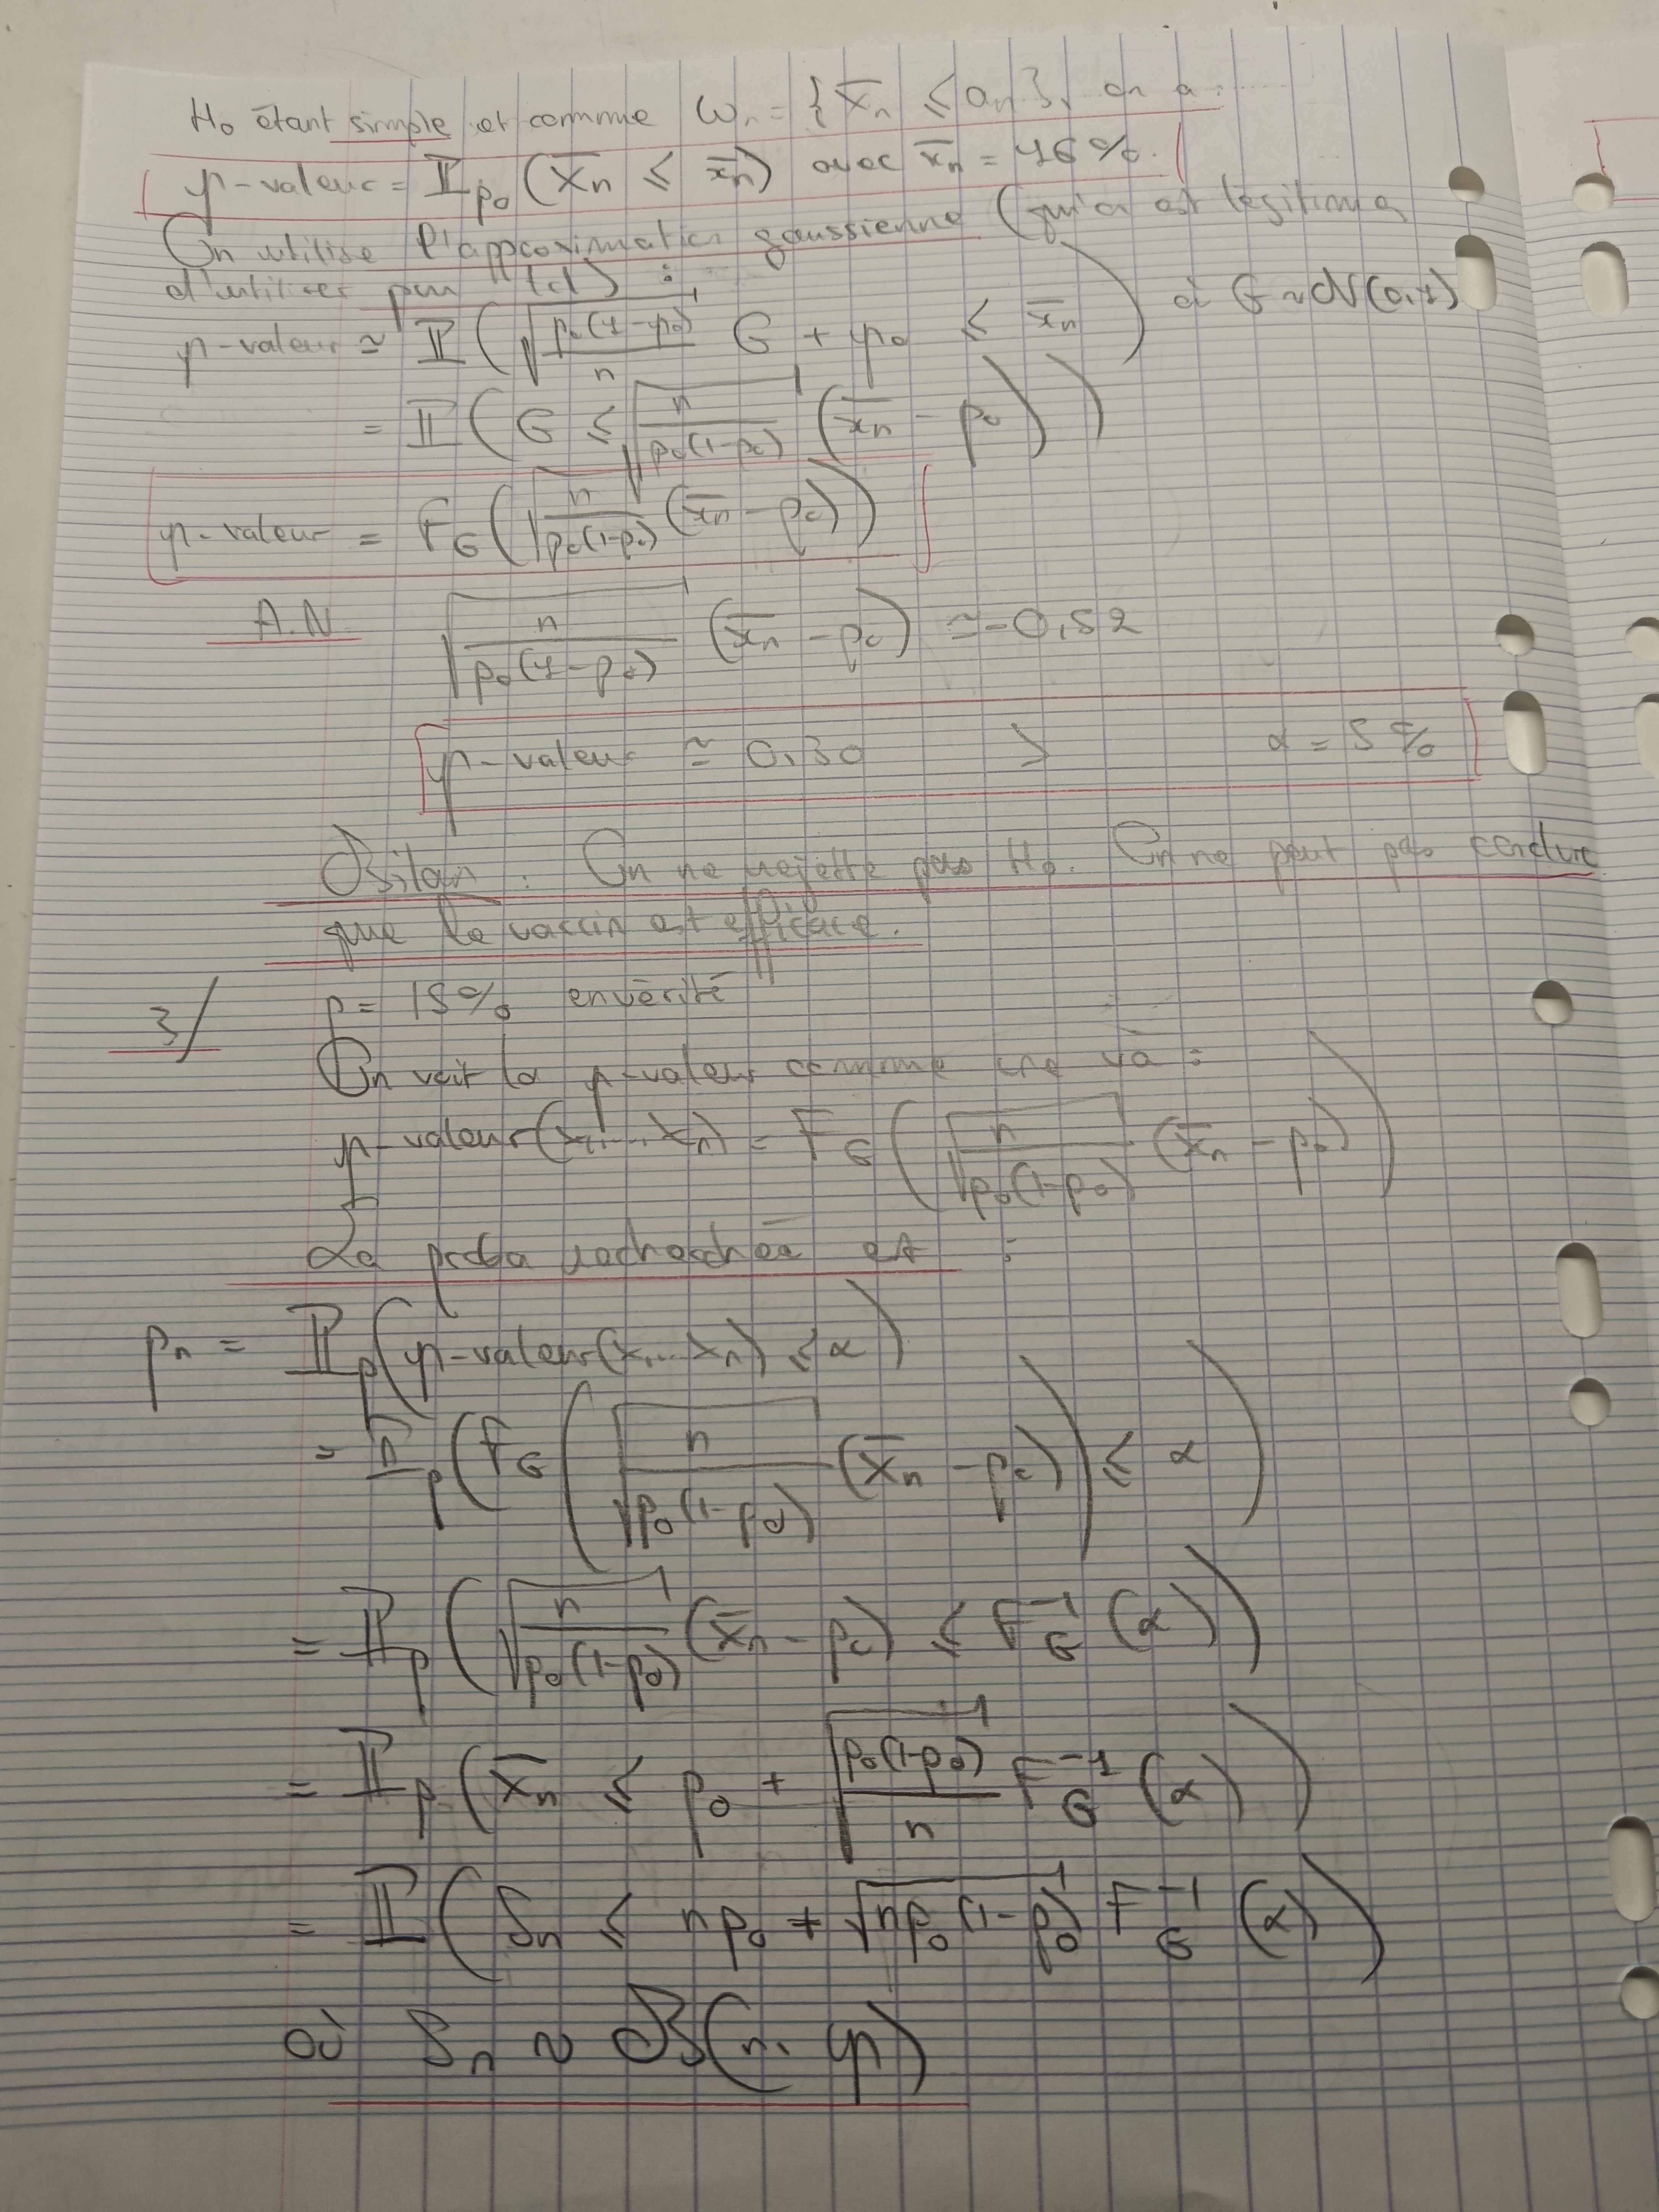 H₀ étant simple et comme Wₙ = {X̄ₙ ≤ aₙ}, on a :
p-valeur = ℙ_p₀ (X̄ₙ ≤ x̄ₙ) avec x̄ₙ = 16 %.
On utilise l'approximation gaussienne (qu'il est légitime
d'utiliser par (d)) :
p-valeur ≃ ℙ(√(p₀(1-p₀)/n) G + p₀ ≤ x̄ₙ) où G ~ N(0,1)
= ℙ(G ≤ √(n/(p₀(1-p₀))) (x̄ₙ - p₀))
p-valeur = F_G(√(n/(p₀(1-p₀))) (x̄ₙ - p₀))
A.N
√(n/(p₀(1-p₀))) (x̄ₙ - p₀) ≃ -0,52
p-valeur ≃ 0,30 > α = 5 %
Bilan : On ne rejette pas H₀. On ne peut pas conclure
que le vaccin est efficace.
3/ p = 15% en vérité
On voit la p-valeur comme une va :
p-valeur(X₁, ..., Xₙ) = F_G(√(n/(p₀(1-p₀))) (X̄ₙ - p₀))
La proba recherchée est :
pₙ = ℙ_p(p-valeur(X₁...Xₙ) ≤ α)
= ℙ_p(F_G(√(n/(p₀(1-p₀))) (X̄ₙ - p₀)) ≤ α)
= ℙ_p(√(n/(p₀(1-p₀))) (X̄ₙ - p₀) ≤ F_G⁻¹(α))
= ℙ_p(X̄ₙ ≤ p₀ + √(p₀(1-p₀)/n) F_G⁻¹(α))
= ℙ(Sₙ ≤ np₀ + √(np₀(1-p₀)) F_G⁻¹(α))
où Sₙ ~ B(n, p)